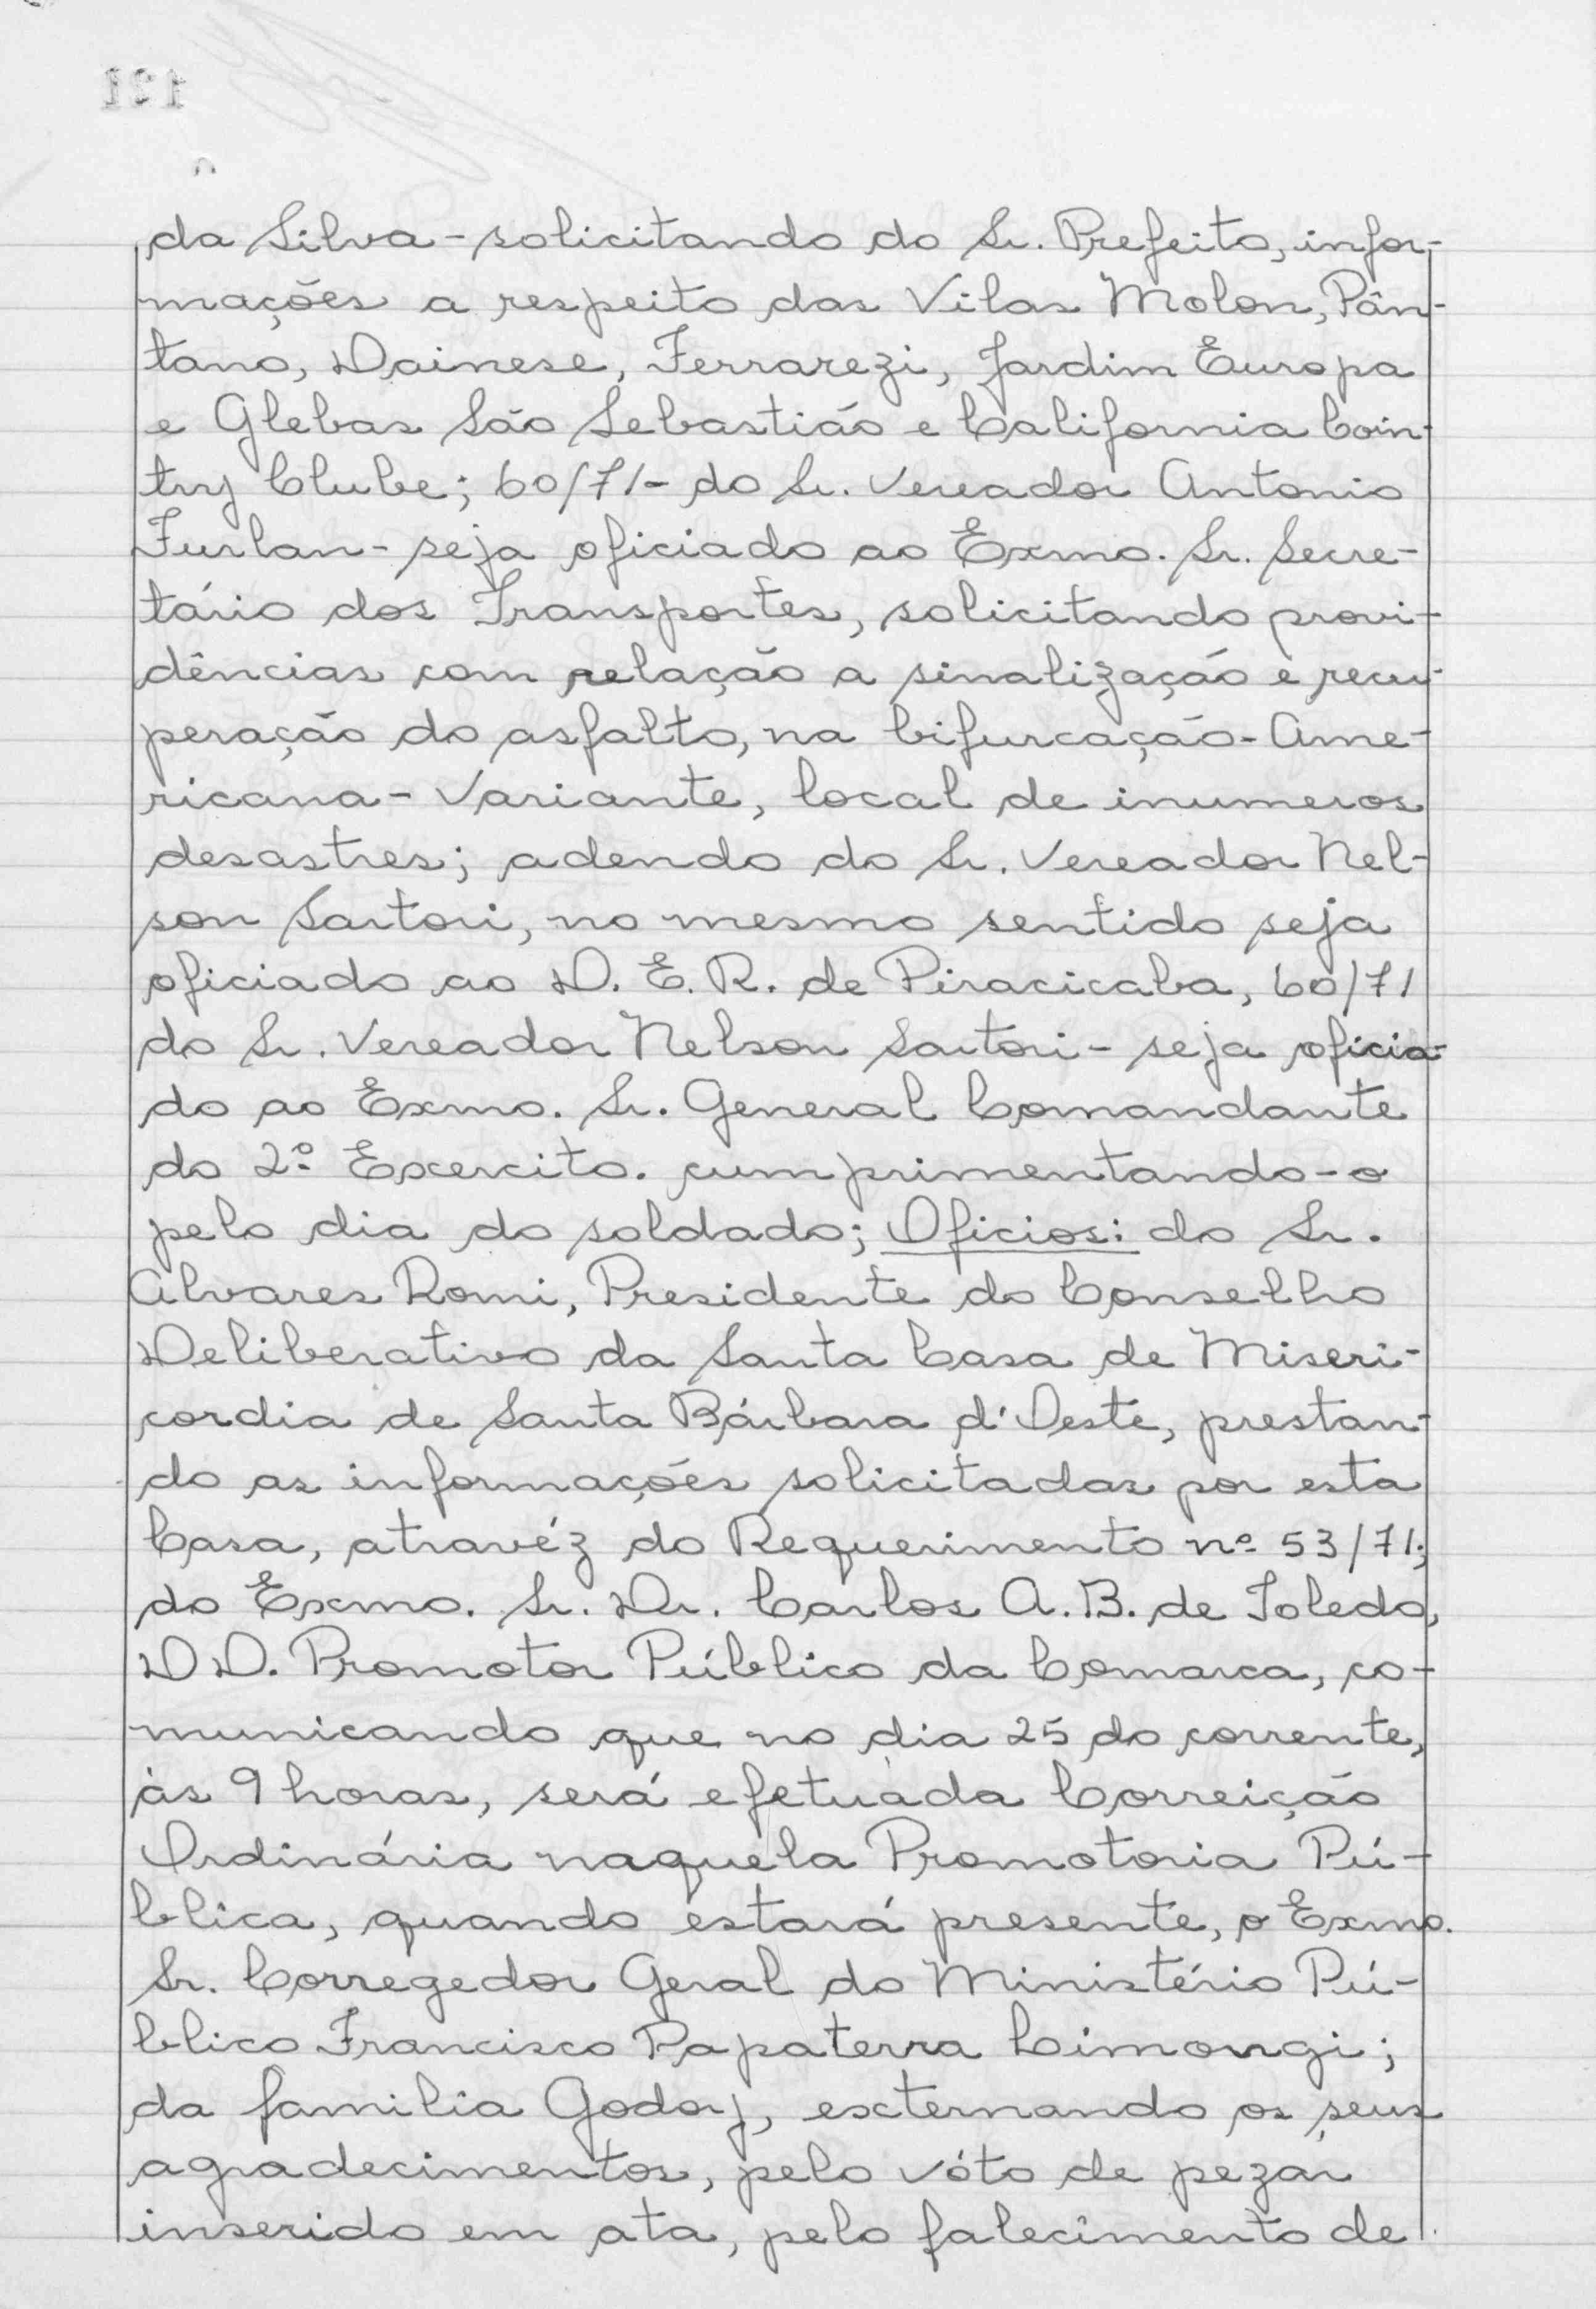 da Silva - solicitando do Sr. Prefeito, infor-
mações a respeito das Vilas Molon, Pân-
tano, Dainese, Ferrarezi, Jardim Europa
e Glebas São Sebastião e California Coin-
try Clube; 60/71- do Sr. Vereador Antonio
Furlan - seja oficiado ao Exmo. Sr. Secre-
tário dos Transportes, solicitando provi-
dências com relação a sinalização e recu-
peração do asfalto, na bifurcação - Ame-
ricana - Variante, local de inumeros
desastres; adendo do Sr. Vereador Nel-
son Sartori, no mesmo sentido seja
oficiado ao D. E. R. de Piracicaba, 60/71
do Sr. Vereador Nelson Sartori - seja oficia-
do ao Exmo. Sr. General Comandante
do 2º Excercito. cumprimentando-o
pelo dia do soldado; Oficios: do Sr.
Alvares Romi, Presidente do Conselho
Deliberativo da Santa Casa de Miseri-
cordia de Santa Bárbara d'Oeste, prestan-
do as informações solicitadas por esta
Casa, atravéz do Requerimento nº 53/71;
do Exmo. Sr. Dr. Carlos A. B. de Toledo,
DD. Promotor Público da Comarca, co-
municando que no dia 25 do corrente,
às 9 horas, será efetuada Correição
Ordinária naquela Promotoria Pú-
blica, quando estará presente, o Exmo.
Sr. Corregedor Geral do Ministério Pú-
blico Francisco Papaterra Limongi;
da familia Godoy, externando os seus
agradecimentos, pelo vóto de pezar
inserido em ata, pelo falecimento de